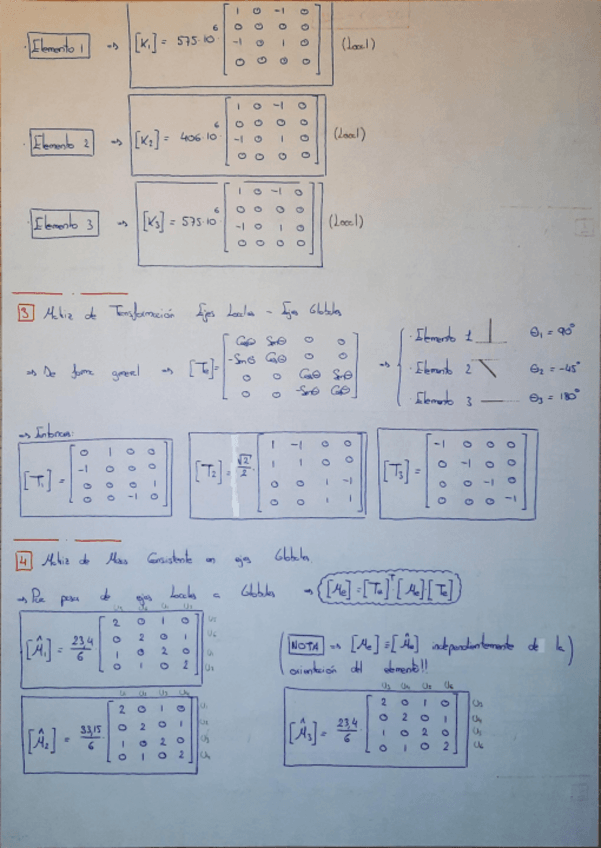 · Elemento 1 ⇒ [K₁] = 575·10⁶ [1 0 -1 0; 0 0 0 0; -1 0 1 0; 0 0 0 0] (Local)
· Elemento 2 ⇒ [K₂] = 406·10⁶ [1 0 -1 0; 0 0 0 0; -1 0 1 0; 0 0 0 0] (Local)
· Elemento 3 ⇒ [K₃] = 575·10⁶ [1 0 -1 0; 0 0 0 0; -1 0 1 0; 0 0 0 0] (Local)
3 Matriz de Transformación Ejes Locales - Ejes Globales
⇒ De forma general ⇒ [Te] = [Cosθ Senθ 0 0; -Senθ Cosθ 0 0; 0 0 Cosθ Senθ; 0 0 -Senθ Cosθ] ⇒
· Elemento 1 | θ₁ = 90°
· Elemento 2 \ θ₂ = -45°
· Elemento 3 — θ₃ = 180°
⇒ Entonces:
[T₁] = [0 1 0 0; -1 0 0 0; 0 0 0 1; 0 0 -1 0]
[T₂] = √2/2 · [1 -1 0 0; 1 1 0 0; 0 0 1 -1; 0 0 1 1]
[T₃] = [-1 0 0 0; 0 -1 0 0; 0 0 -1 0; 0 0 0 -1]
4 Matriz de Masa Consistente en ejes Globales.
⇒ Para pasar de ejes Locales a Globales ⇒ [M̂e] = [Te]ᵀ [Me] [Te]
[M̂₁] = 23,4/6 [2 0 1 0; 0 2 0 1; 1 0 2 0; 0 1 0 2]
(NOTA ⇒ [Me] = [M̂e] independientemente de la
orientación del elemento!!)
[M̂₂] = 33,15/6 [2 0 1 0; 0 2 0 1; 1 0 2 0; 0 1 0 2]
[M̂₃] = 23,4/6 [2 0 1 0; 0 2 0 1; 1 0 2 0; 0 1 0 2]